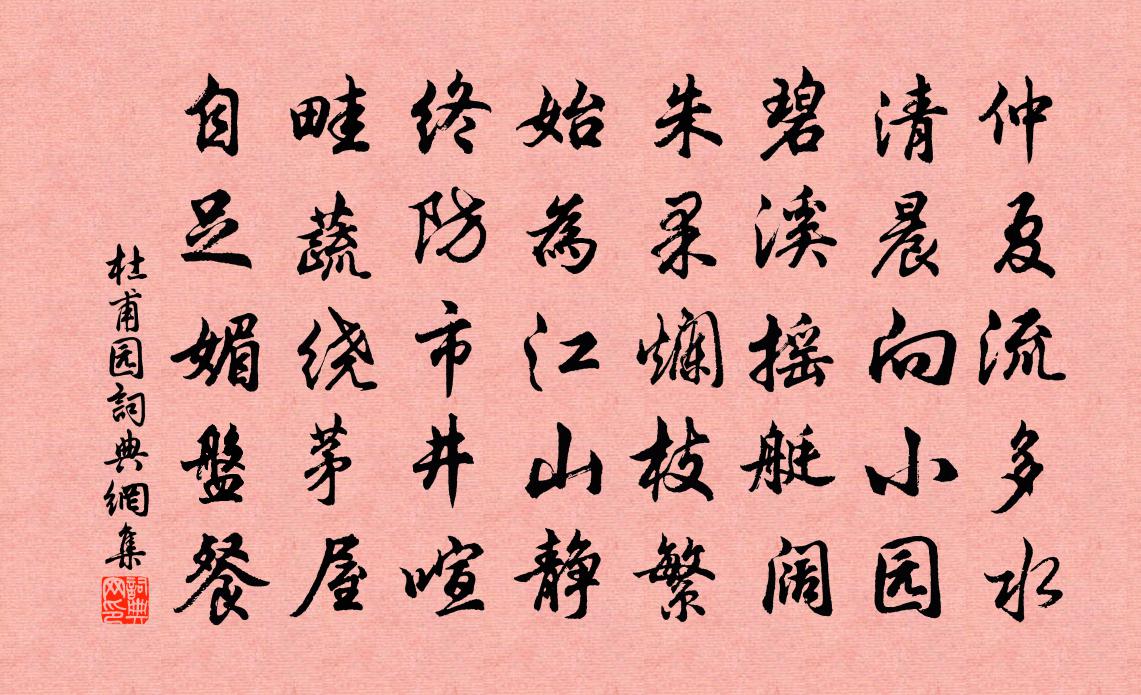 仲夏流多水
清晨向小园
碧溪摇艇阔
朱果爛枝繁
始為江山静
终防市井喧
畦蔬绕茅屋
自足媚盤餐
杜甫园詞典網集
詞典网印